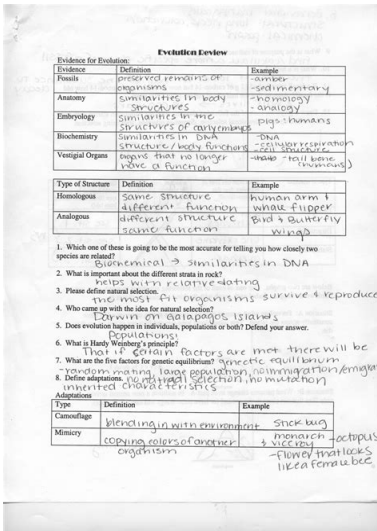 Evolution Review
Evidence for Evolution:
Evidence Definition Example
Fossils preserved remains of organisms -amber -sedimentary
Anatomy similarities in body structures -homology -analogy
Embryology similarities in the structures of early embryos pigs : humans
Biochemistry similarities in DNA structure / body functions -DNA -cellular respiration -cell structure
Vestigial Organs organs that no longer have a function -tail bone (humans)
Type of Structure Definition Example
Homologous same structure different function human arm & whale flipper
Analogous different structure same function Bird & Butterfly wings
1. Which one of these is going to be the most accurate for telling you how closely two
species are related?
Biochemical → similarities in DNA
2. What is important about the different strata in rock?
helps with relative dating
3. Please define natural selection.
the most fit organisms survive & reproduce
4. Who came up with the idea for natural selection?
Darwin on Galapagos Islands
5. Does evolution happen in individuals, populations or both? Defend your answer.
Populations!
6. What is Hardy Weinberg's principle?
That if certain factors are met there will be
7. What are the five factors for genetic equilibrium? genetic equilibrium
-random mating, large population, no immigration/emigra
8. Define adaptations. no natural selection, no mutation
inherited characteristics
Adaptations
Type Definition Example
Camouflage blending in with environment stick bug
Mimicry copying colors of another organism monarch & viceroy -octopus
-flower that looks
like a female bee